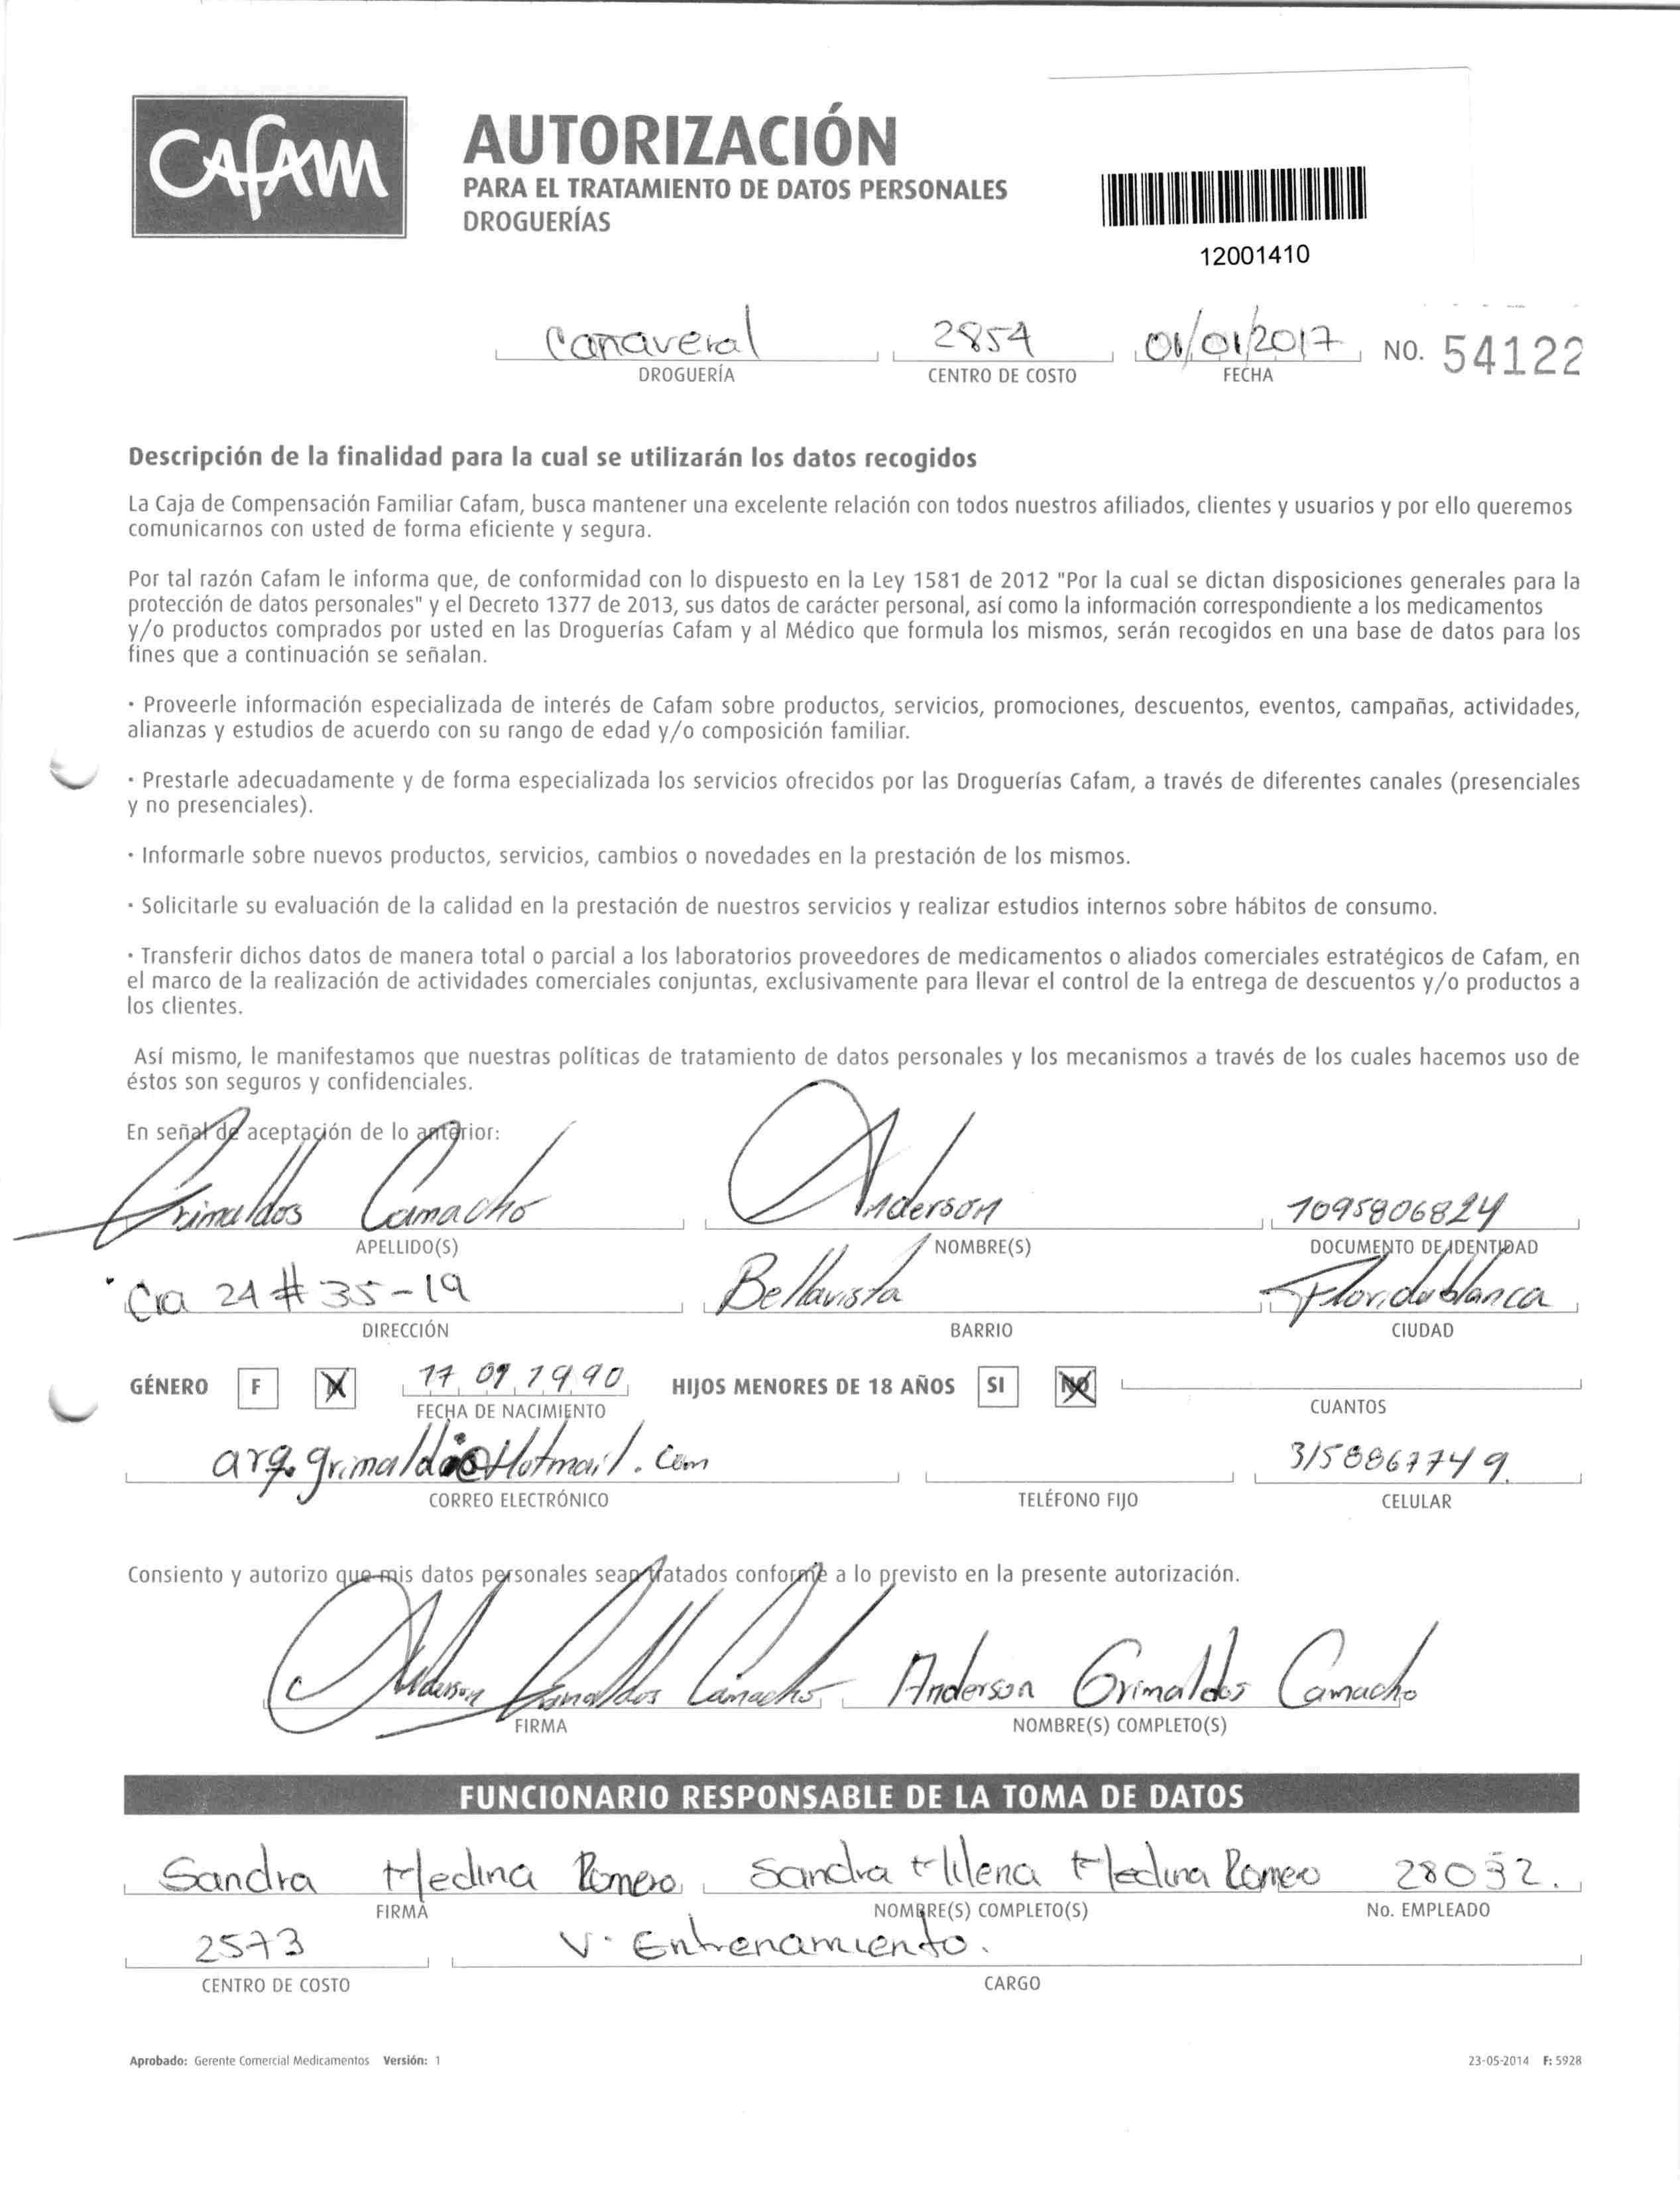 CAFAM
AUTORIZACIÓN
PARA EL TRATAMIENTO DE DATOS PERSONALES
DROGUERÍAS
12001410
Canaveral 2854 01/01/2017 NO. 54122
DROGUERÍA CENTRO DE COSTO FECHA
Descripción de la finalidad para la cual se utilizarán los datos recogidos
La Caja de Compensación Familiar Cafam, busca mantener una excelente relación con todos nuestros afiliados, clientes y usuarios y por ello queremos
comunicarnos con usted de forma eficiente y segura.
Por tal razón Cafam le informa que, de conformidad con lo dispuesto en la Ley 1581 de 2012 "Por la cual se dictan disposiciones generales para la
protección de datos personales" y el Decreto 1377 de 2013, sus datos de carácter personal, así como la información correspondiente a los medicamentos
y/o productos comprados por usted en las Droguerías Cafam y al Médico que formula los mismos, serán recogidos en una base de datos para los
fines que a continuación se señalan.
· Proveerle información especializada de interés de Cafam sobre productos, servicios, promociones, descuentos, eventos, campañas, actividades,
alianzas y estudios de acuerdo con su rango de edad y/o composición familiar.
· Prestarle adecuadamente y de forma especializada los servicios ofrecidos por las Droguerías Cafam, a través de diferentes canales (presenciales
y no presenciales).
· Informarle sobre nuevos productos, servicios, cambios o novedades en la prestación de los mismos.
· Solicitarle su evaluación de la calidad en la prestación de nuestros servicios y realizar estudios internos sobre hábitos de consumo.
· Transferir dichos datos de manera total o parcial a los laboratorios proveedores de medicamentos o aliados comerciales estratégicos de Cafam, en
el marco de la realización de actividades comerciales conjuntas, exclusivamente para llevar el control de la entrega de descuentos y/o productos a
los clientes.
Así mismo, le manifestamos que nuestras políticas de tratamiento de datos personales y los mecanismos a través de los cuales hacemos uso de
éstos son seguros y confidenciales.
En señal de aceptación de lo anterior:
Grimaldos Camacho Anderson 1095806824
APELLIDO(S) NOMBRE(S) DOCUMENTO DE IDENTIDAD
Cra 24 # 35-19 Bellavista Floridablanca
DIRECCIÓN BARRIO CIUDAD
GÉNERO F X 17 09 1990 HIJOS MENORES DE 18 AÑOS SI NO
FECHA DE NACIMIENTO CUANTOS
3158867749
CORREO ELECTRÓNICO TELÉFONO FIJO CELULAR
Consiento y autorizo que mis datos personales sean tratados conforme a lo previsto en la presente autorización.
Anderson Grimaldos Camacho Anderson Grimaldos Camacho
FIRMA NOMBRE(S) COMPLETO(S)
FUNCIONARIO RESPONSABLE DE LA TOMA DE DATOS
Sandra Medina Romero Sandra Milena Medina Romero 28032.
FIRMA NOMBRE(S) COMPLETO(S) No. EMPLEADO
2573 V. Entrenamiento.
CENTRO DE COSTO CARGO
Aprobado: Gerente Comercial Medicamentos Versión: 1 23-05-2014 F: 5928